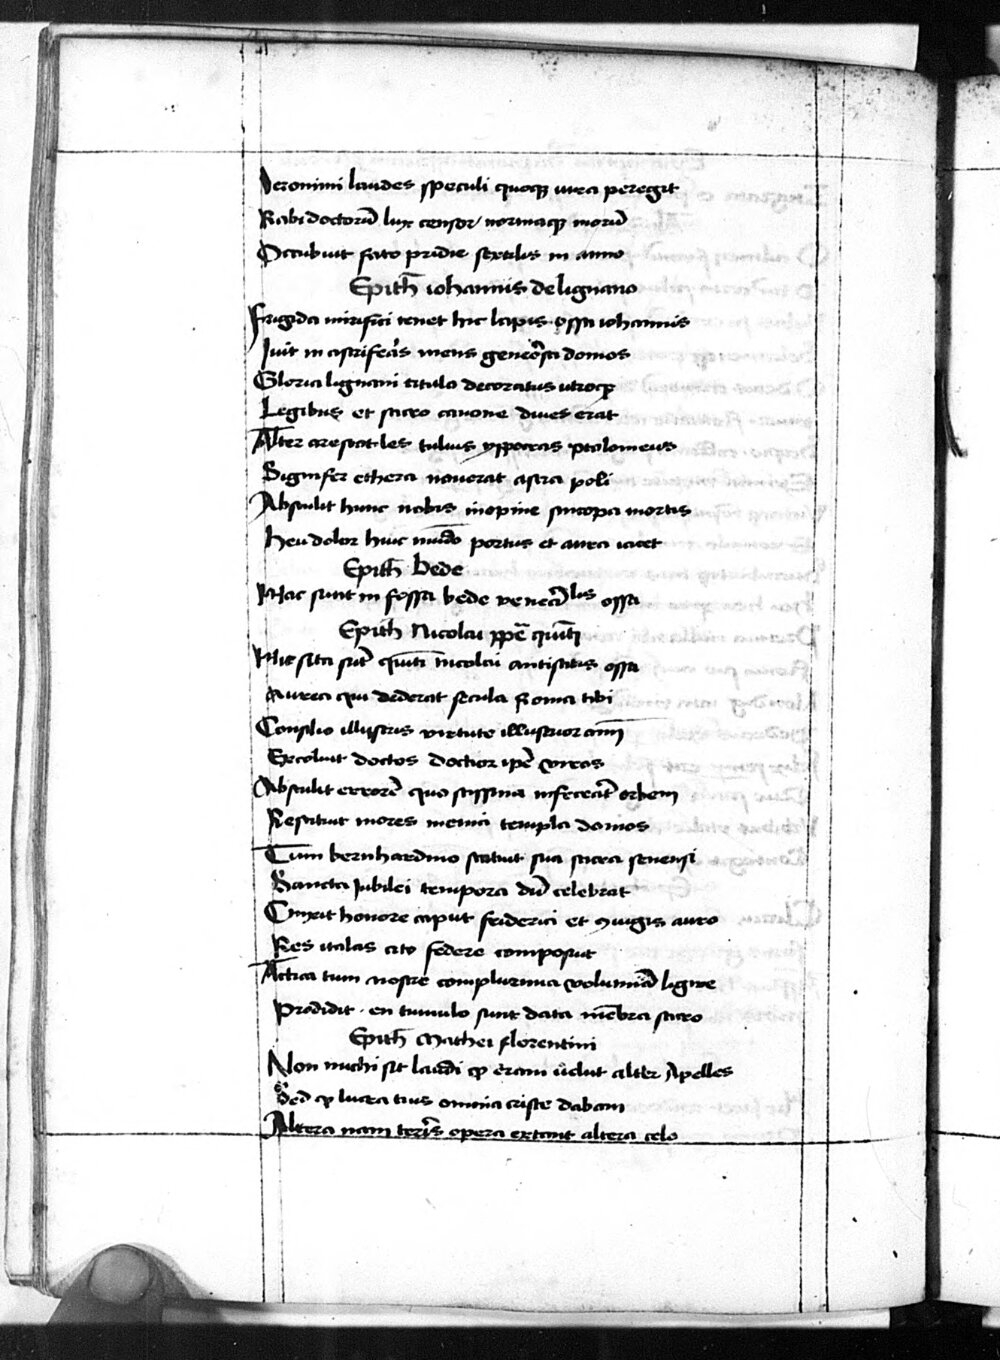 Ieronimi laudes speculi quoque iura peregit
Rabi doctorū lux censor normaque morū
Occubuit fato pridie sextilis in anno
Epith̄ iohannis de lignano
Frigida mirifici tenet hic lapis ossa iohannis
Iuit in astriferās mens generosa domos
Gloria lignani titulo decoratus utroque
Legibus et sacro canone diues erat
Alter arestotiles tulius ypocras ptolomeus
Signifer ethera nouerat astra poli
Abstulit hunc nobis inopine sincopa mortis
Heu dolor huic mūdo portus et aura iacet
Epith̄ Bede
Hac sunt in fossa bede venerabilis ossa
Epith̄ Nicolai ppē quinti
Hic sita sūt quīti nicolai antistitis ossa
Aurea qui dederat secula Roma tibi
Consilio illustris virtute illustrior omī
Excoluit doctos doctior ipē viros
Abstulit errorē quo scissma infecerāt orbem
Restituit mores menia templa domos
Tum bernhardino statuit sua sacra senensi
Sancta Iubilei tempora dū celebrat
Cinxit honore caput friderici et 9iugis auro
Res italas cito federe composuit
Actica tum nostre complurima voluminā ligwe
Prodidit · en tumulo sunt data mēbra sacro
Epith̄ Mathei florentini
Non michi sit laudi qꝫ eram uelut alter Apelles
Sed qꝫ lucra tuis omnia criste dabam
Altera nam terris opera extant altera celo